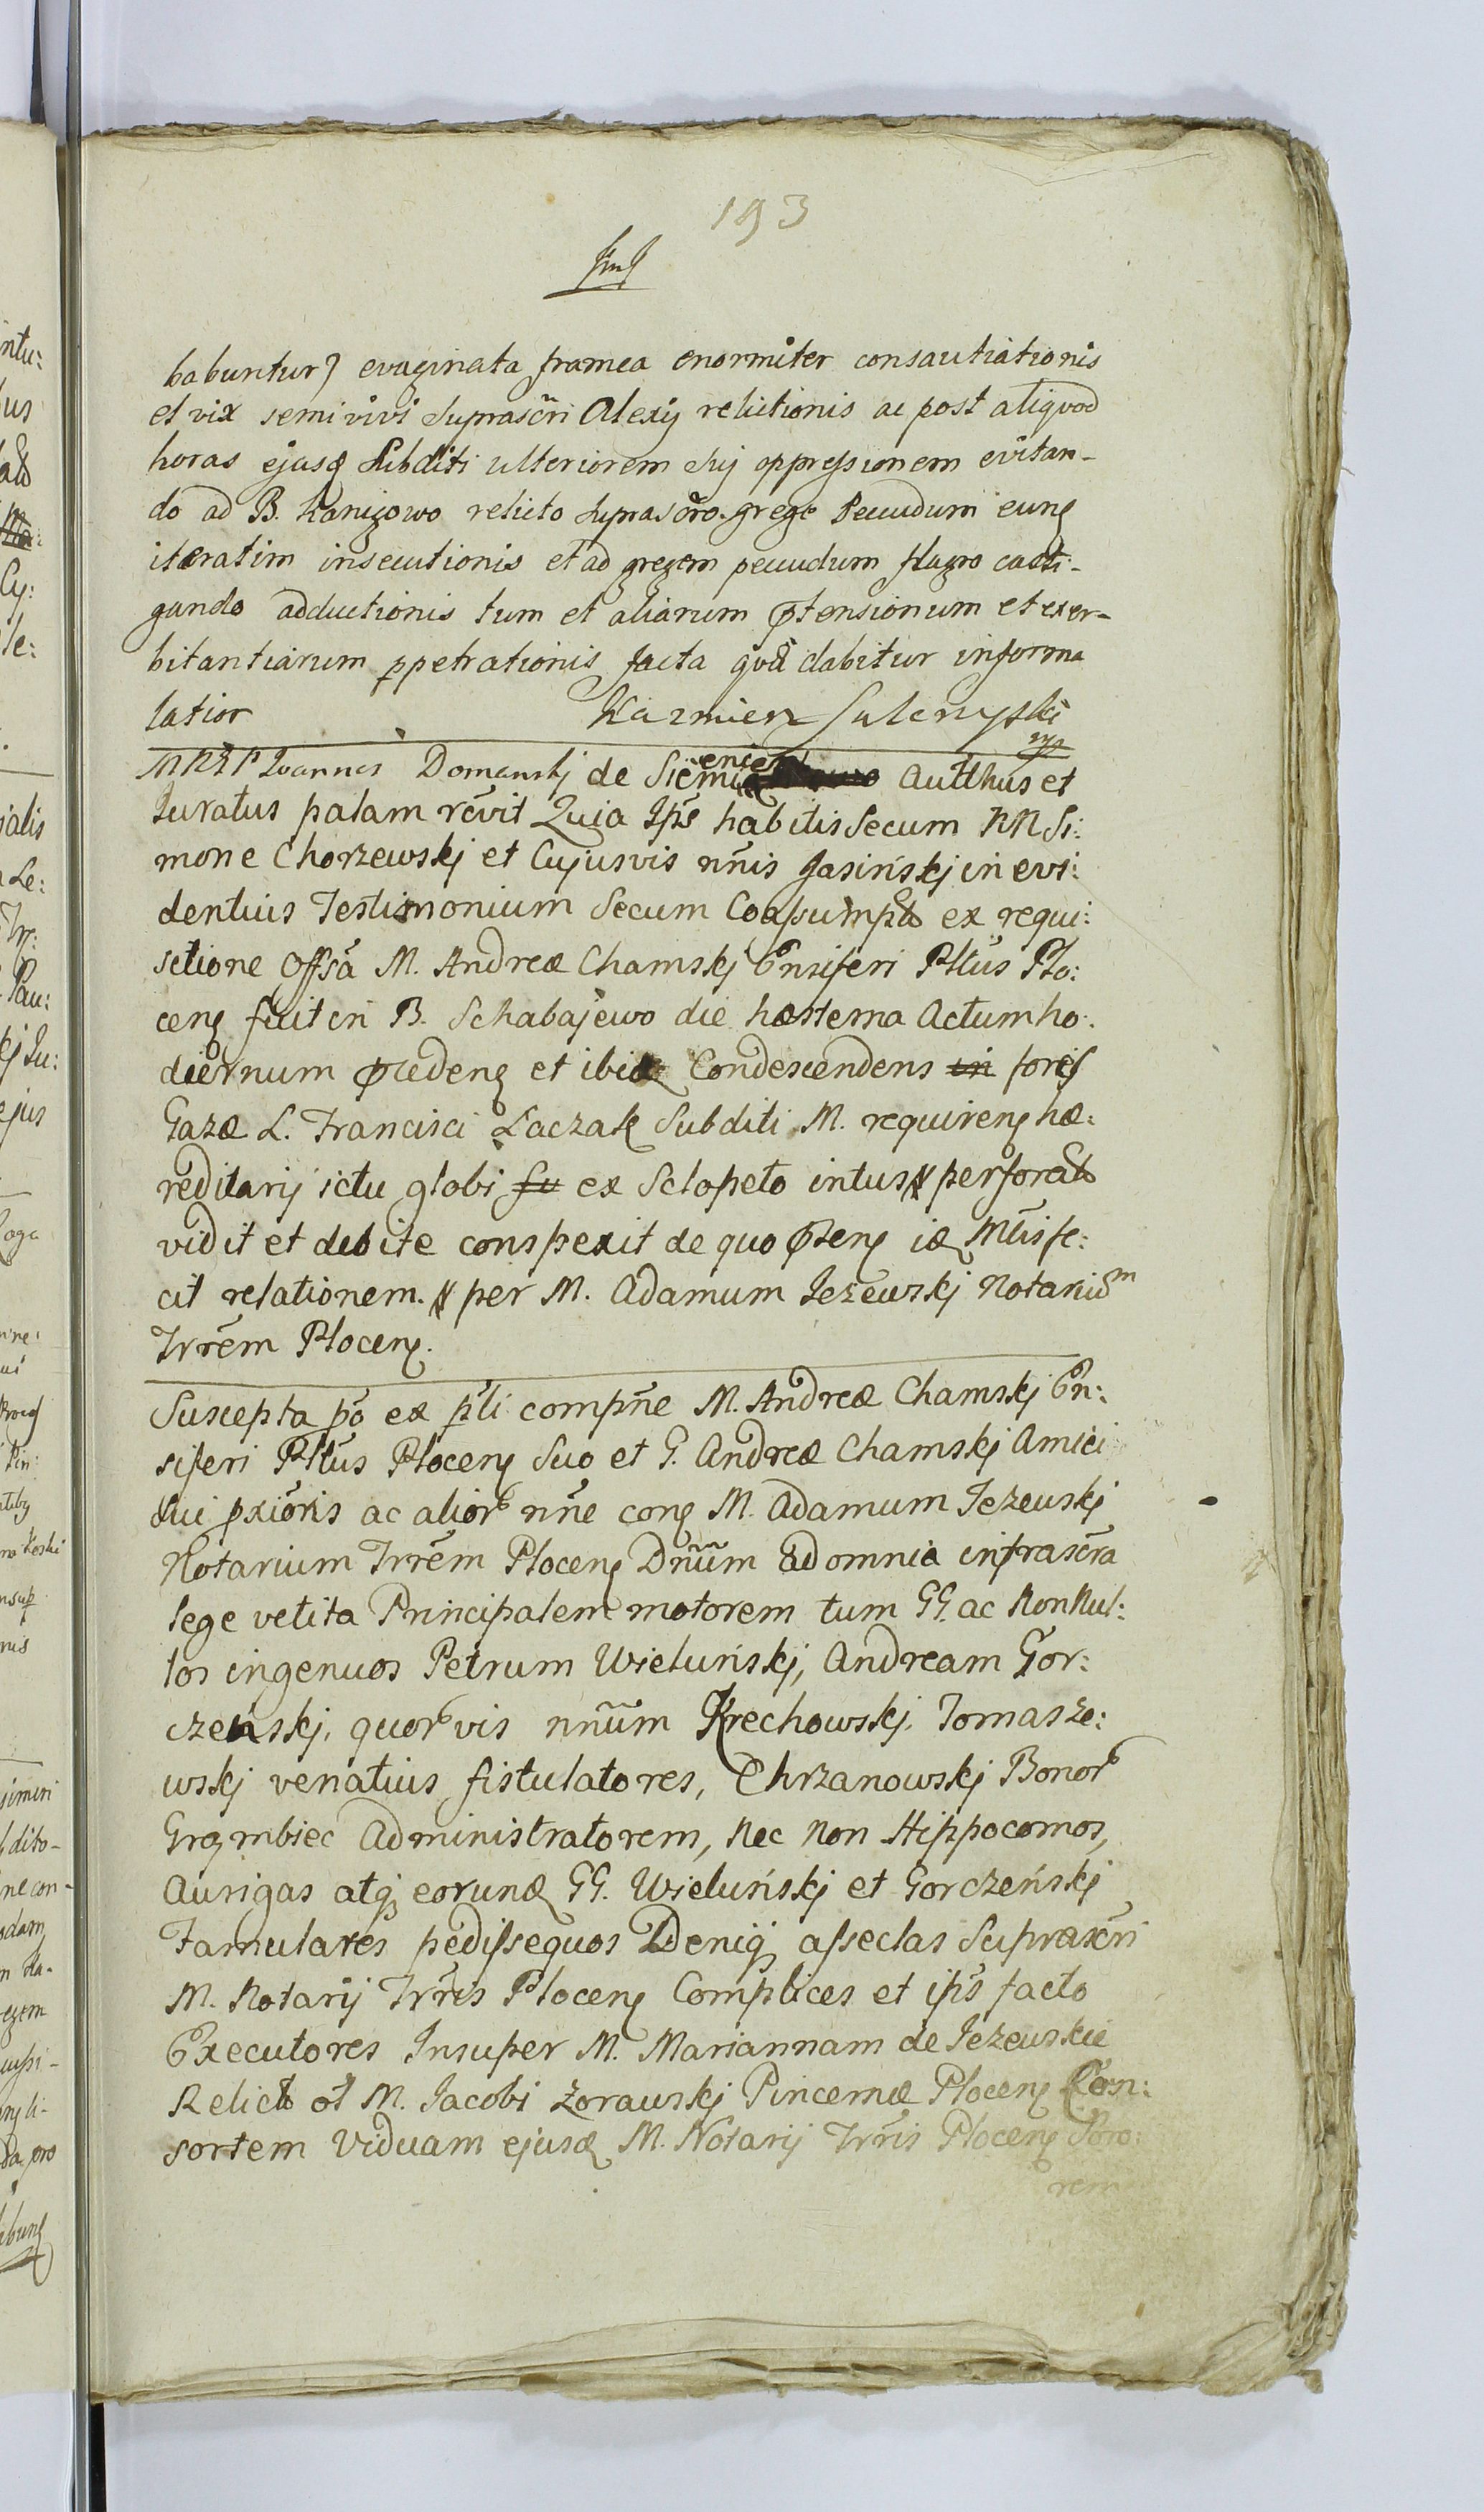 193
babuntur) evaginata framea enormiter consautiationis
et vix semivivi Suprascri Alexij relictionis ac post aliqvod
horas ejusq Subditi ulteriorem Sui oppressionem evitan-
do ad B. Kanigowo relicto Suprascro grege Pecudum eung
iteratim insecutionis et ad gregem pecudum flagro casti-
gando adductionis tum et aliarum ptensionum et exor-
bitantiarum ppetrationis facta qvâ dabitur informa
latior Kazmierz Sulerzyski
mp
Ioannes Domanskj de Siemi enie Autthus et
Iuratus palam revit Quia Ips habitis Secum NN Si:
mone Chorzewskj et Cujusvis nnis Jasińskj in evi:
dentius Testimonium Secum Coassumpt ex requi:
sitione Offsa M. Andreæ Chamskj Ensiferi Plttus Plo:
ceng fuit in B. Schabajewo die hæsterna Actum ho:
diernum præcedeng et ibiq Condescendens in foris
Gazæ L. Francisci Laczak Subditi M. requireng hæ:
reditarij ictu globi su ex Sclopeto intus perforat
vidit et debite conspexit de quo pteng iq Mtis fe:
cit relationem. per M. Adamum Jeżewskj Notariu m
Trrem Ploceng.
Suscepta po ex pli compne M. Andreæ Chamskj En:
siferi Plttus Ploceng Suo et G. Andreæ Chamskj Amici
Sui pxioris ac alior nne cong M. Adamum Jeżeuskj
Notarium Trrem Ploceng Dnum ad omnia infrascra
lege vetita Principalem motorem tum GG. ac NonNul:
los ingenuos Petrum Wieluńskj, Andream Gor:
czeńskj, quor vis nnum Krechowskj, Tomasze:
wskj venatuis fistulatores, Chrzanowskj Bonor
Grąmbiec Administratorem, Nec Non Hippocomos,
Aurigas atq eorunq GG. Wieluńskj et Gorczeńskj
Famulares pedissequos Deniq asseclas Suprascri
M. Notarij Trris Ploceng Complices et ips facto
Executores Insuper M. Mariannam de Jeżeuskie
Relict ol M. Jacobi Zorauskj Pincernæ Ploceng Con:
sortem Viduam ejusq M. Notarij Trris Ploceng Soro:
rem